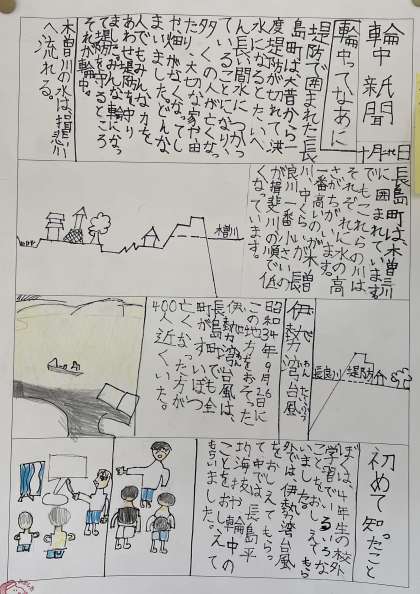 輪中新聞
十月 日
輪中ってなあに
堤防で囲まれた長
島町は、大昔から一
度堤防が切れて洪
水になると、たいへ
ん長い間水につかっ
ていることになり、
多くの人が亡くなっ
たり、大切な家や田
や畑がなくなってし
まいました。どんな
人でもみんな力を
あわせ堤防を守り
ました。みんな輪になっ
て堤防を守るところ
それが輪中。
木曽川の水は、揖斐川
へ流れる。
長島町は、木曽三川
に囲まれています。
でもこれらの川は
それぞれに水の高
さがちがいます。
一番高いのが木曽
川、中くらいが長
良川、一番小さいの
が揖斐川の順で低
くなっています。
木曽川
長良川
堤防
伊勢湾台風
いせわんたいふう
昭和34年9月26日に
この地方をおそった
伊勢湾台風は、
長島町でも全
町がすいぼつ
亡くなった方が
400人近くいた。
初めて知ったこと
ぼくは、4年生の校外
学習でいろいろな
ことをおしえてもら
いました。
外では伊勢湾台風
をおしえてもらっ
て中では、長島平
功海技や輪中の
ことをおしえて
もらいました。